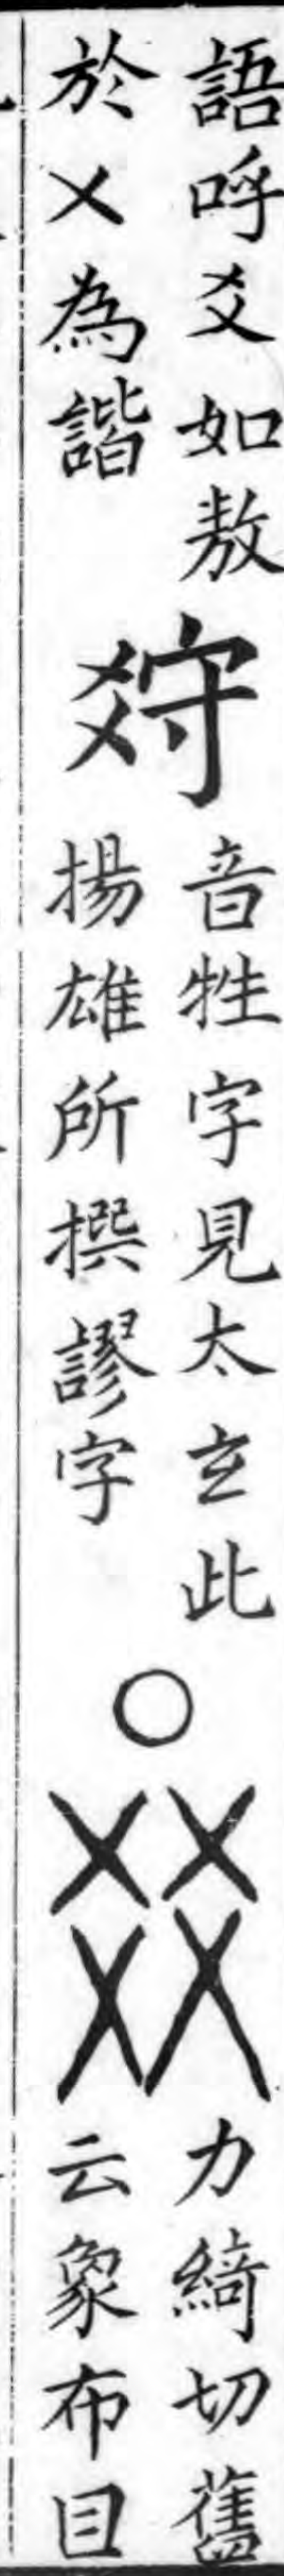 語呼爻如敖
於㐅為諧
音牲字見太玄此
揚雄所撰謬字
○
㸚
力綺切舊
云象布目